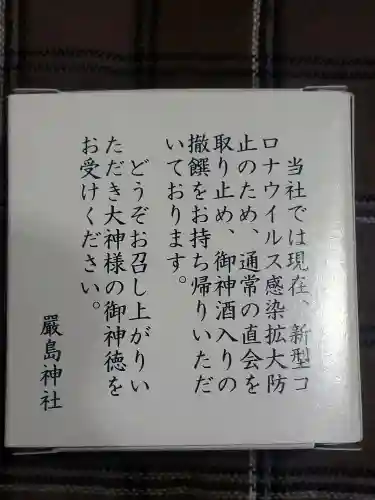 当社では現在、新型コ
ロナウイルス感染拡大防
止のため、通常の直会を
取り止め、御神酒入りの
撤饌をお持ち帰りいただ
いております。
どうぞお召し上がりい
ただき大神様の御神徳を
お受けください。
嚴島神社